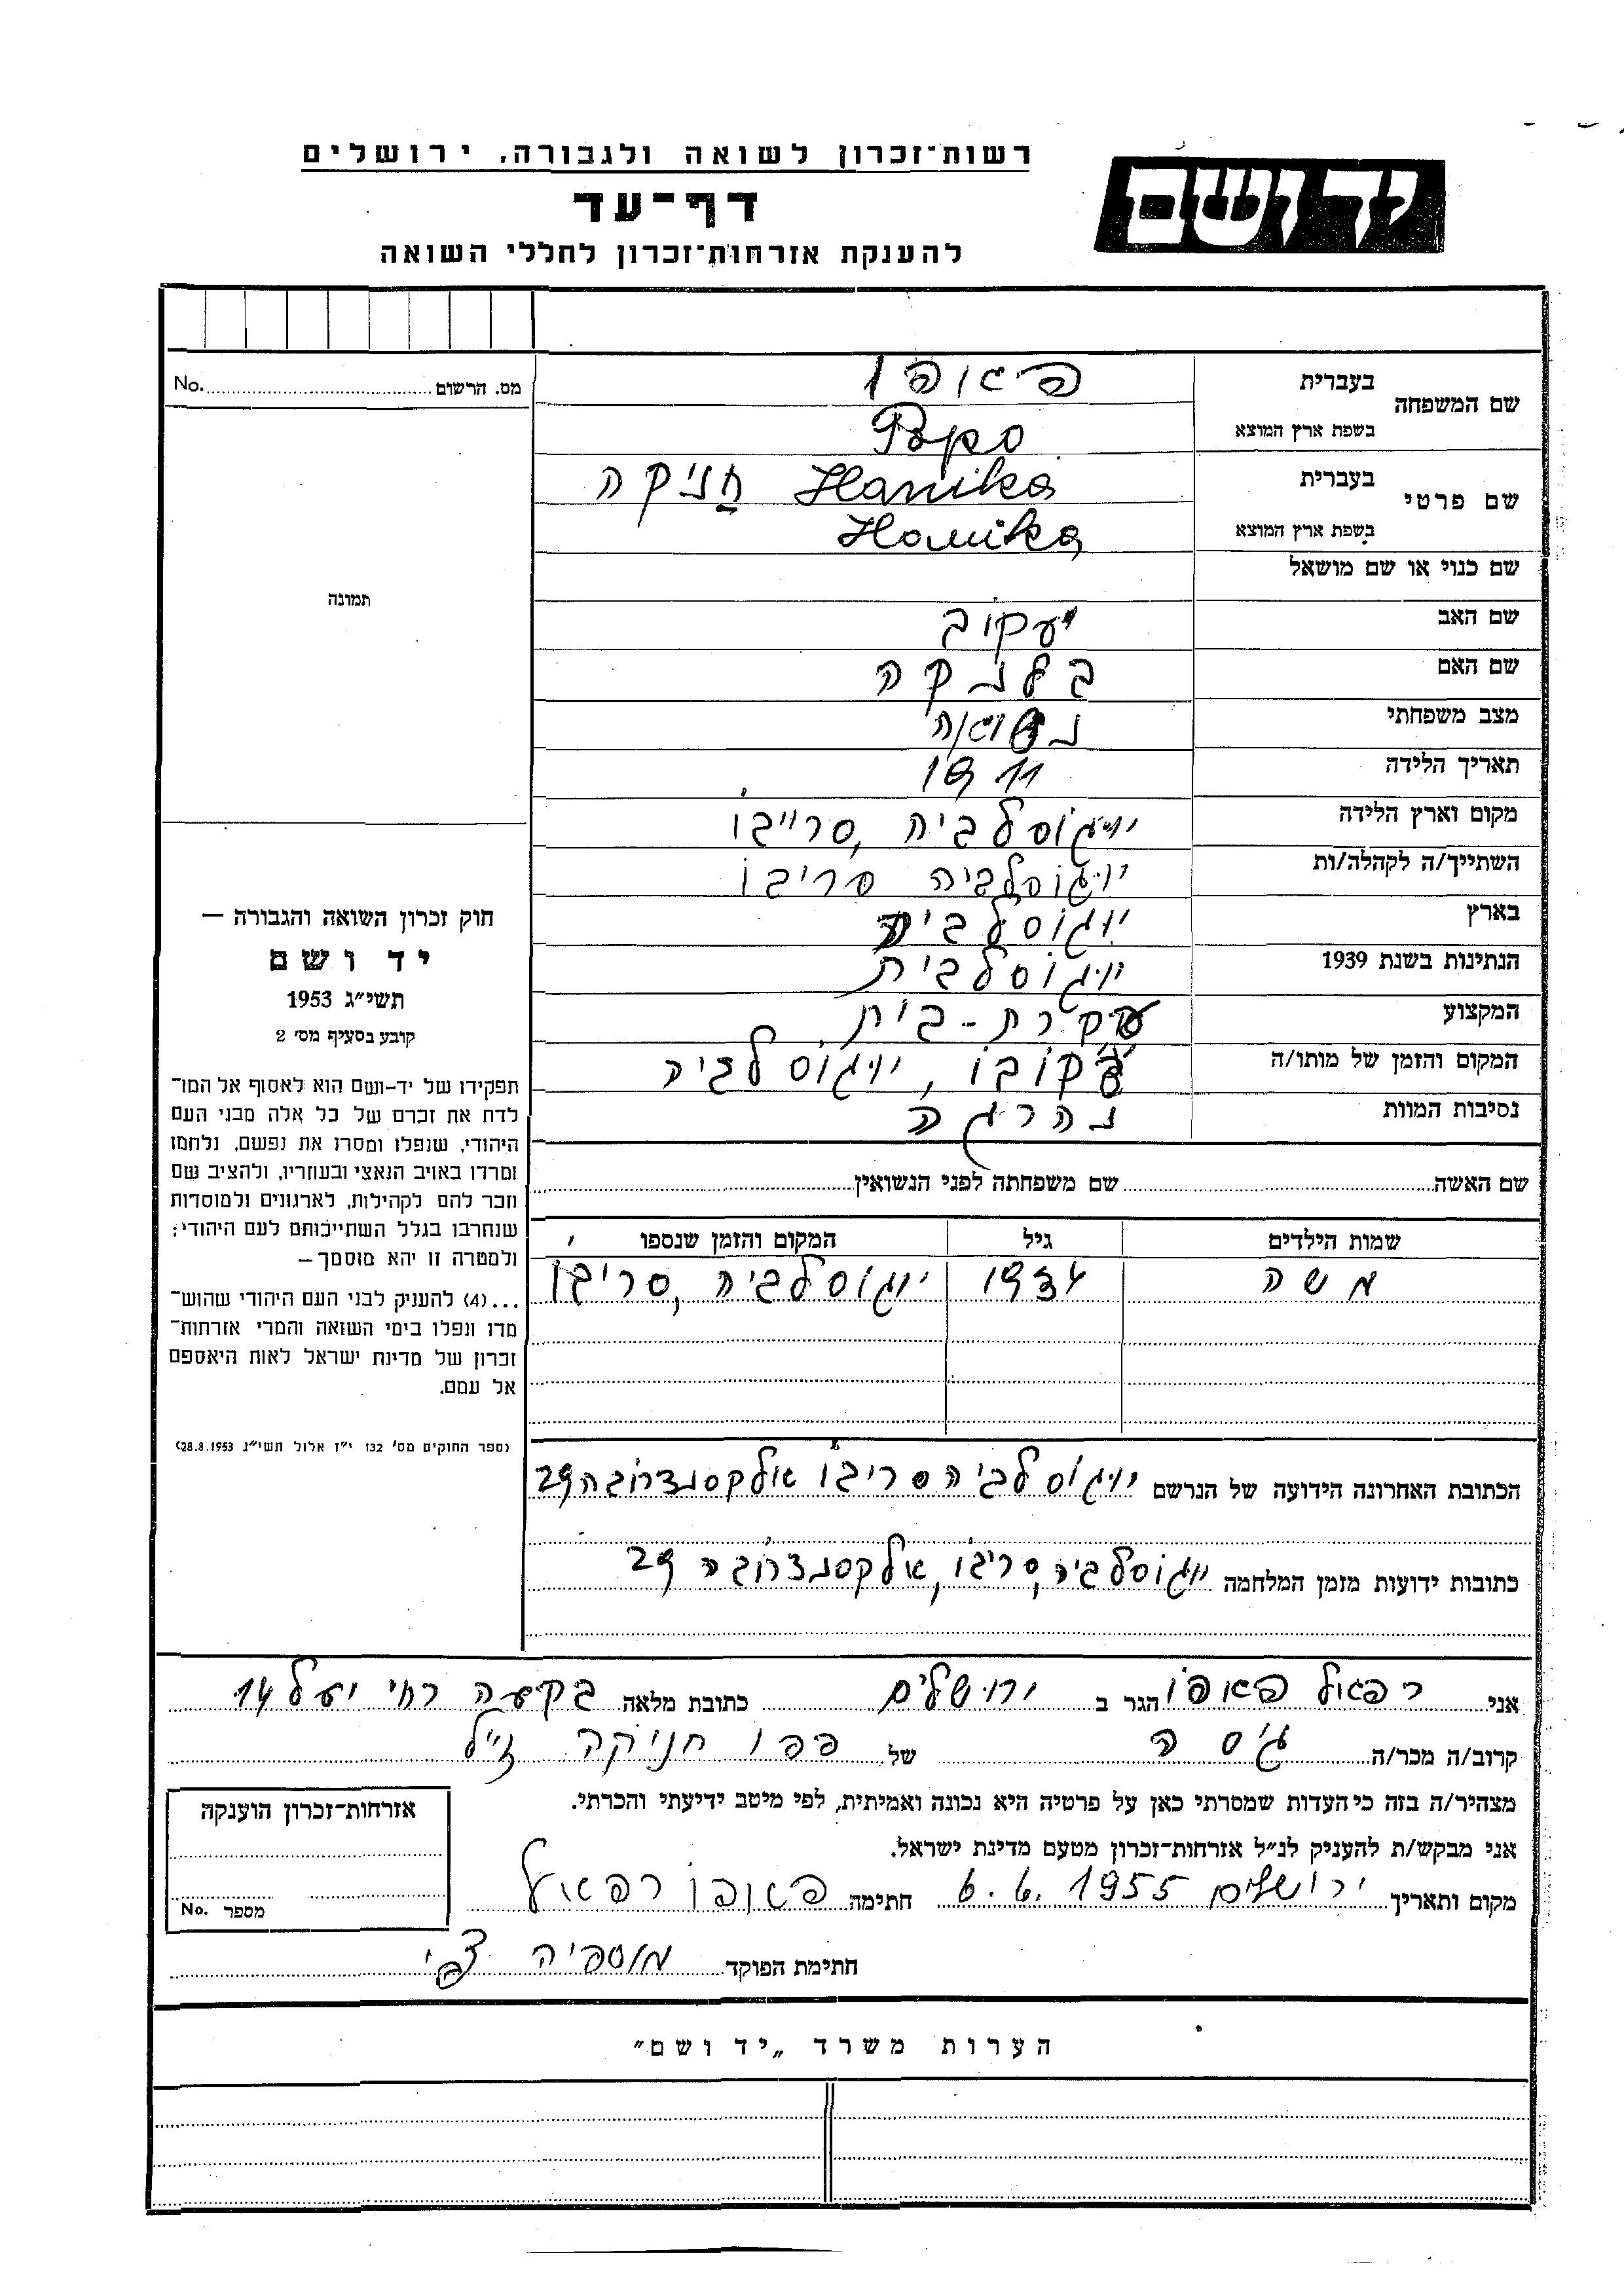 רשות־זכרון לשואה ולגבורה, ירושלים
יד ושם
דף־עד
להענקת אזרחות־זכרון לחללי השואה
מס. הרשום No.
תמונה
שם המשפחה
בעברית פאפו
בשפת ארץ המוצא Papo
שם פרטי
בעברית Hanika חניקה
בשפת ארץ המוצא Hanika
שם כנוי או שם מושאל
שם האב יעקוב
שם האם בלנקה
מצב משפחתי נשואה
תאריך הלידה 1911
מקום וארץ הלידה יוגוסלביה, סרייבו
השתייך/ה לקהלה/ות יוגוסלביה סריבו
בארץ יוגוסלביה
הנתינות בשנת 1939 יוגוסלבית
המקצוע עקרת-בית
המקום והזמן של מותו/ה ג'קובו, יוגוסלביה
נסיבות המוות נהרגה
שם האשה שם משפחתה לפני הנשואין
שמות הילדים גיל המקום והזמן שנספו
משה 1934 יוגוסלביה, סריבו
חוק זכרון השואה והגבורה —
יד ושם
תשי״ג 1953
קובע בסעיף מס׳ 2
תפקידו של יד-ושם הוא לאסוף אל המו־
לדת את זכרם של כל אלה מבני העם
היהודי, שנפלו ומסרו את נפשם, נלחמו
ומרדו באויב הנאצי ובעוזריו, ולהציב שם
וזכר להם לקהילות, לארגונים ולמוסדות
שנחרבו בגלל השתייכותם לעם היהודי;
ולמטרה זו יהא מוסמך—
...(4) להעניק לבני העם היהודי שהוש־
מדו ונפלו בימי השואה והמרי אזרחות־
זכרון של מדינת ישראל לאות היאספם
אל עמם.
(ספר החוקים מס׳ 132 י״ז אלול תשי״ג 28.8.1953)
הכתובת האחרונה הידועה של הנרשם יוגוסלביה סריבו אלקסנדרובה 29
כתובות ידועות מזמן המלחמה יוגוסלביה, סריבו, אלקסנדרובה 29
אני רפאל פאפו הגר ב ירושלים כתובת מלאה בקעה רחי יעל 14
קרוב/ה מכר/ה גיסה של פפו חניקה ז״ל
מצהיר/ה בזה כי העדות שמסרתי כאן על פרטיה היא נכונה ואמיתית, לפי מיטב ידיעתי והכרתי.
אני מבקש/ת להעניק לנ״ל אזרחות־זכרון מטעם מדינת ישראל.
מקום ותאריך ירושלים 6.6.1955 חתימה פאפו רפאל
חתימת הפוקד מוספיה צבי
אזרחות־זכרון הוענקה
מספר No.
הערות משרד „יד ושם״